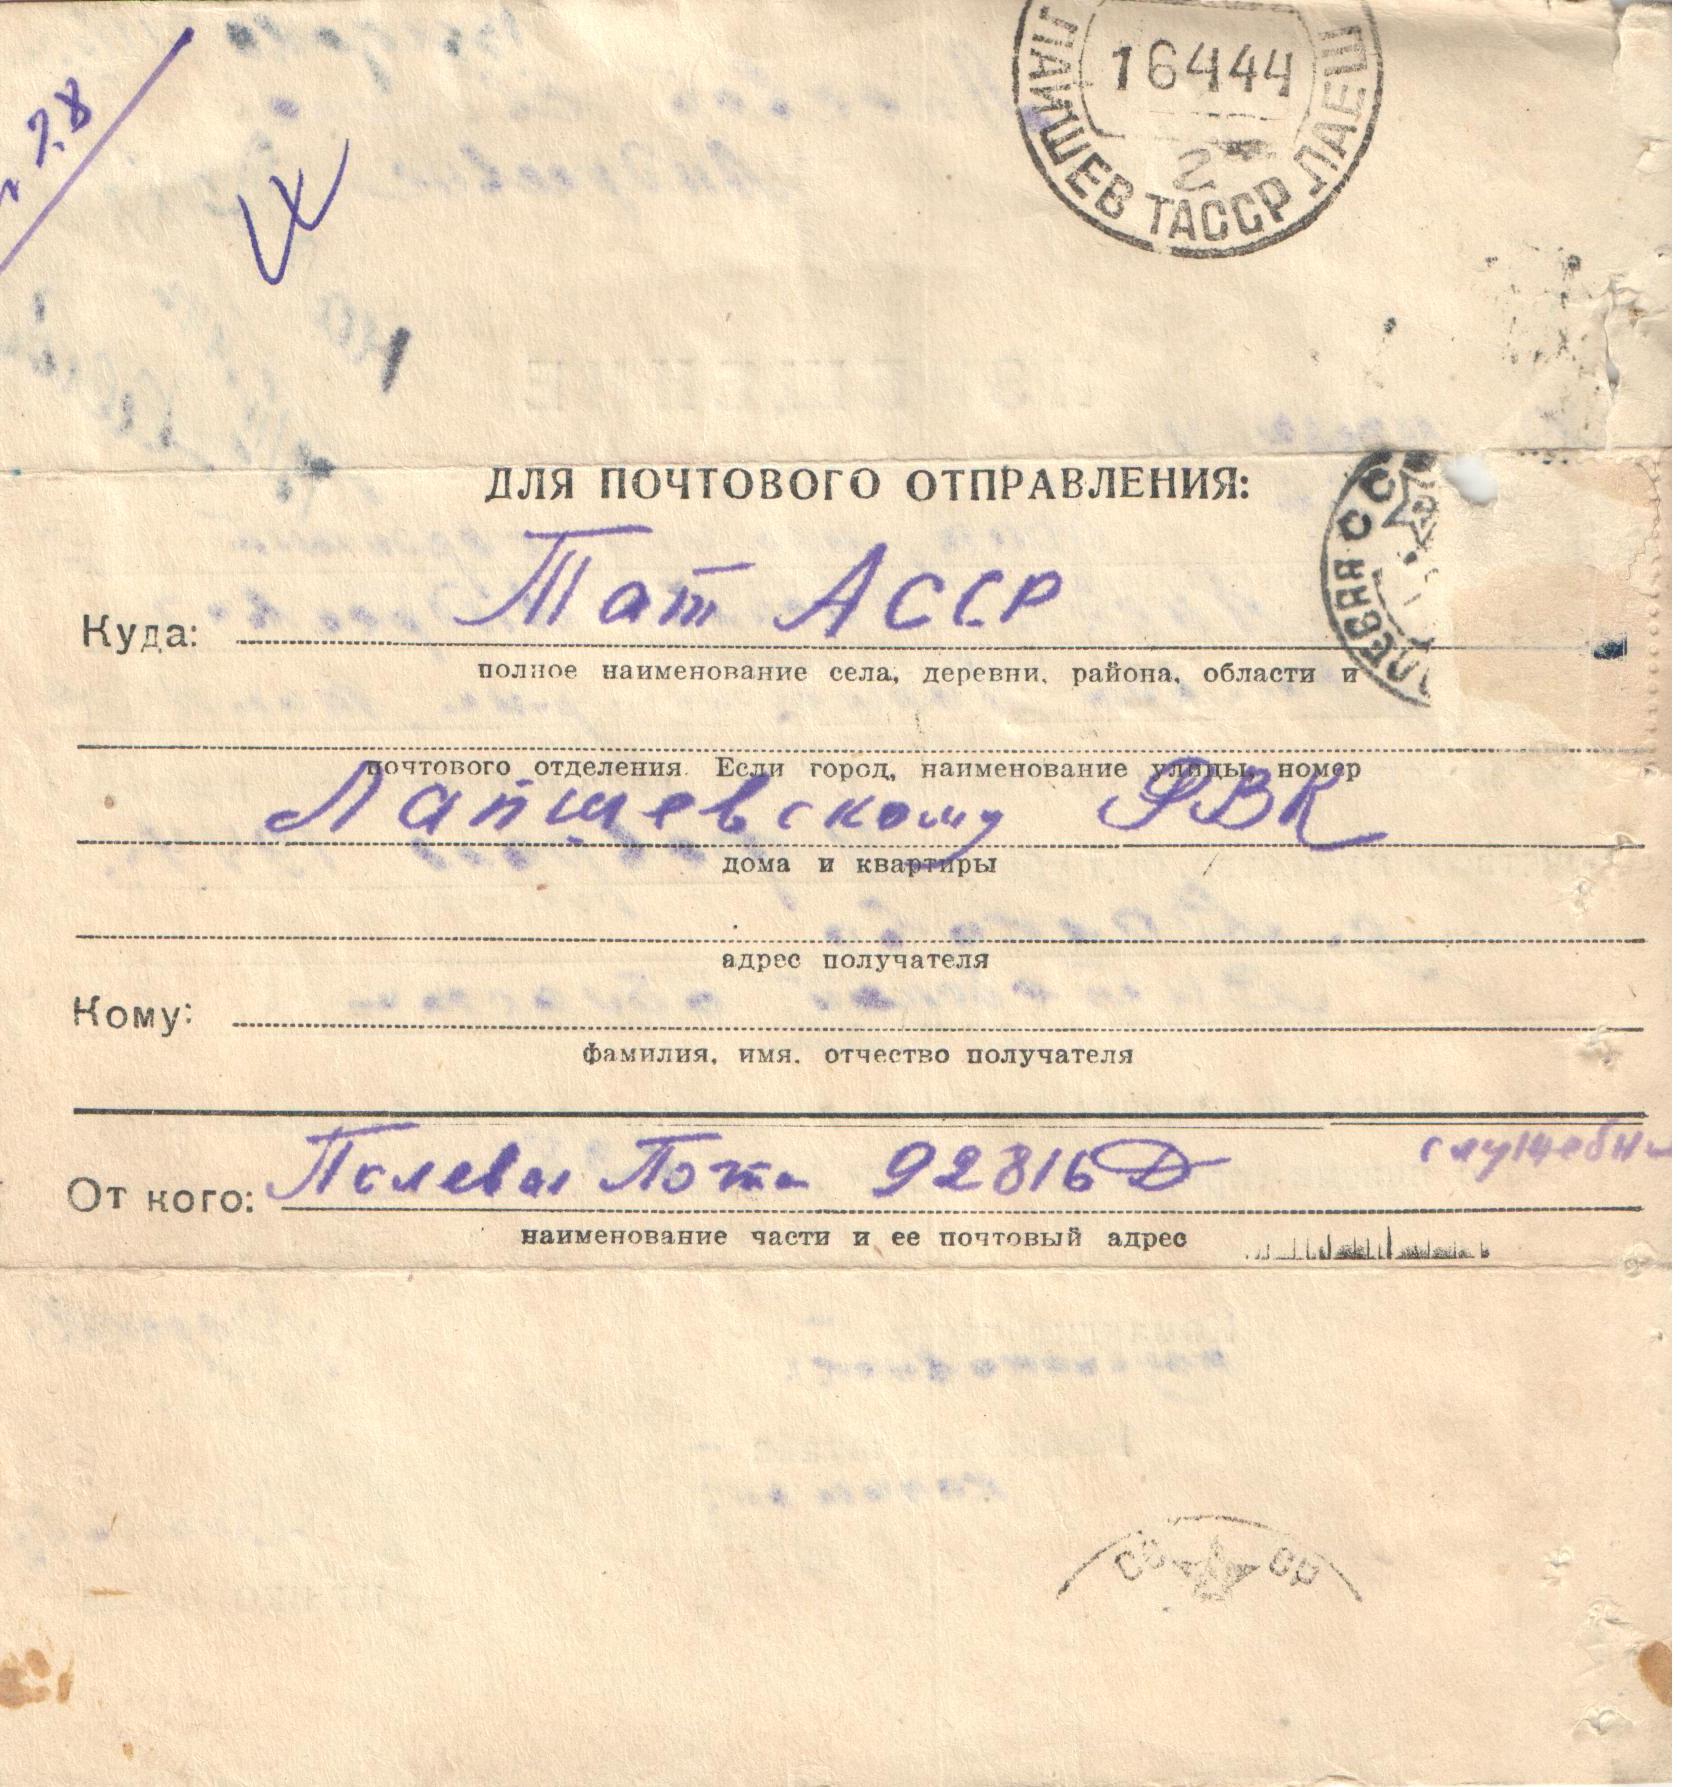 16444
2
ЛАИШЕВ ТАССР ЛАЕШ
ДЛЯ ПОЧТОВОГО ОТПРАВЛЕНИЯ:
Куда: Тат АССР
полное наименование села, деревни, района, области и
почтового отделения. Если город, наименование улицы, номер
Лапшевскому РВК
дома и квартиры
адрес получателя
Кому:
фамилия, имя, отчество получателя
служебн
От кого: Полевая Почта 92816 Д
наименование части и ее почтовый адрес
СС СР